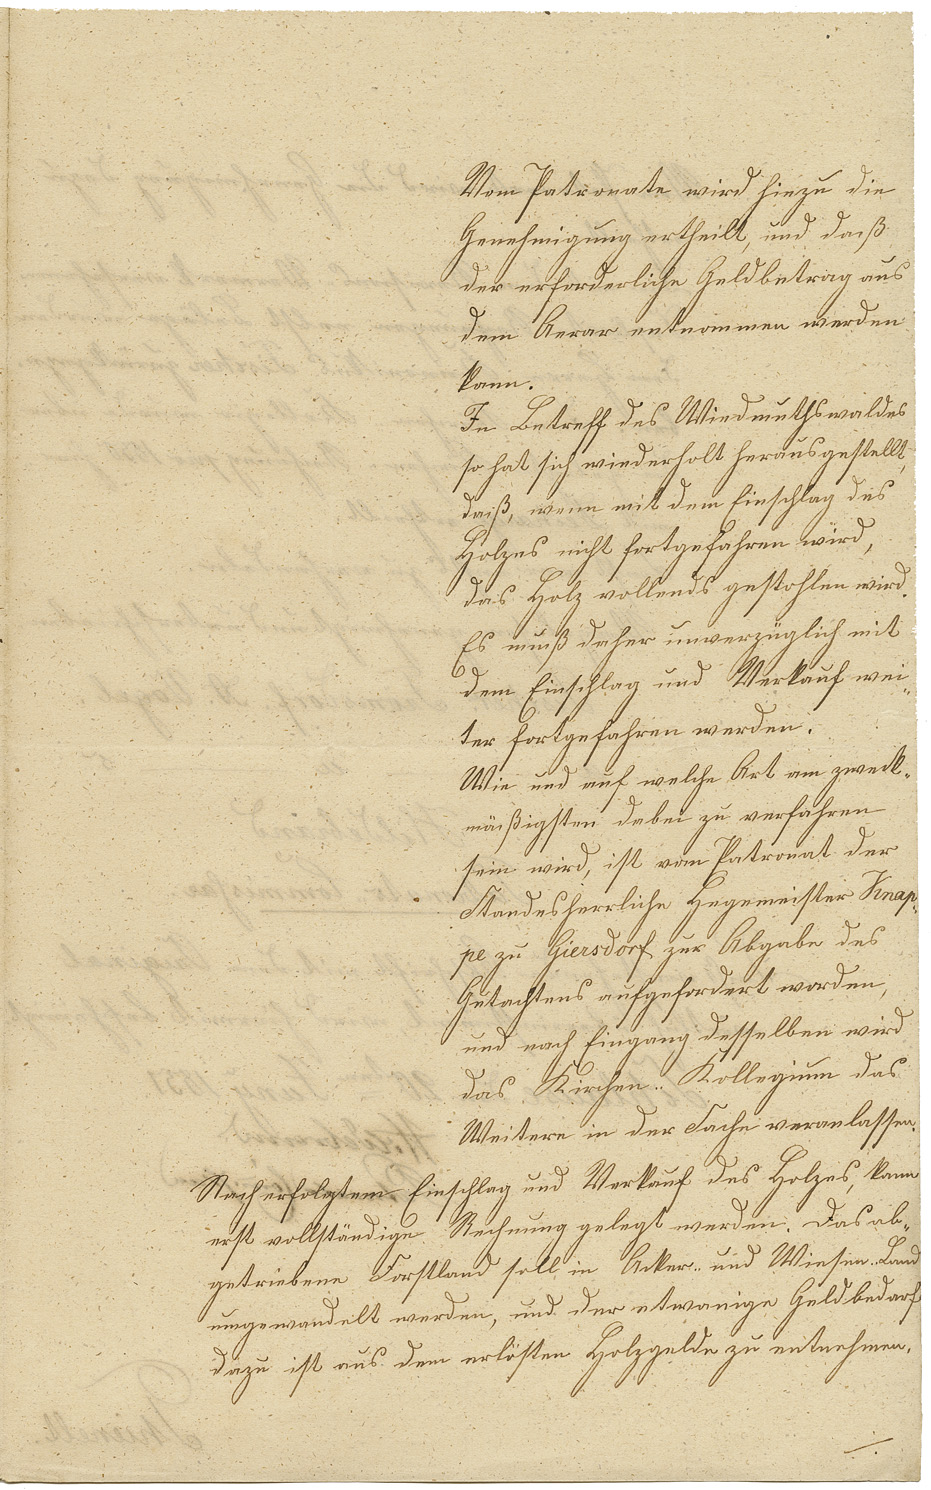 Vom Patronate wird hiezu die
Genehmigung ertheilt, und daß
der erforderliche Geldbetrag aus
dem Aerar entnommen werden
kann.
In Betreff des Wiedmuthswaldes
so hat sich wiederholt herausgestellt,
daß, wenn mit dem Einschlag des
Holzes nicht fortgefahren wird,
das Holz vollends gestohlen wird.
Es muß daher unverzüglich mit
dem Einschlag und Verkauf wei„
ter fortgefahren werden.
Wie und auf welche Art am zweck„
mäßigsten dabei zu verfahren
sein wird, ist vom Patronat der
Standesherrliche Hegemeister Knap„
pe zu Giersdorf zur Abgabe des
Gutachtens aufgefordert worden,
und nach Eingang desselben wird
das Kirchen„Kollegium das
Weitere in der Sache veranlassen.
Nach erfolgtem Einschlag und Verkauf des Holzes, kann
erst vollständige Rechnung gelegt werden. Das ab„
getriebene Forstland soll in Acker„ und Wiesen„Land
umgewandelt werden, und der etwanige Geldbedarf
dazu ist aus dem erlösten Holzgelde zu entnehmen.